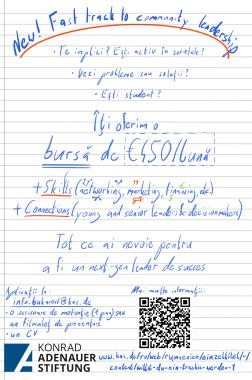 New! Fast track to community leadership
• Te implici? Ești activ în societate?
• Vezi probleme sau soluții?
• Ești student?
Îți oferim o
bursă de €450/lună
+ Skills (networking, marketing, financing, etc)
+ Connections (young and senior leaders & decision makers)
Tot ce ai nevoie pentru
a fi un next-gen leader de succes
Aplică la:
info.bukarest@kas.de
• o scrisoare de motivație (1 pag) sau
un filmuleț de prezentare
• un CV
Mai multe informații:
KONRAD
ADENAUER
STIFTUNG